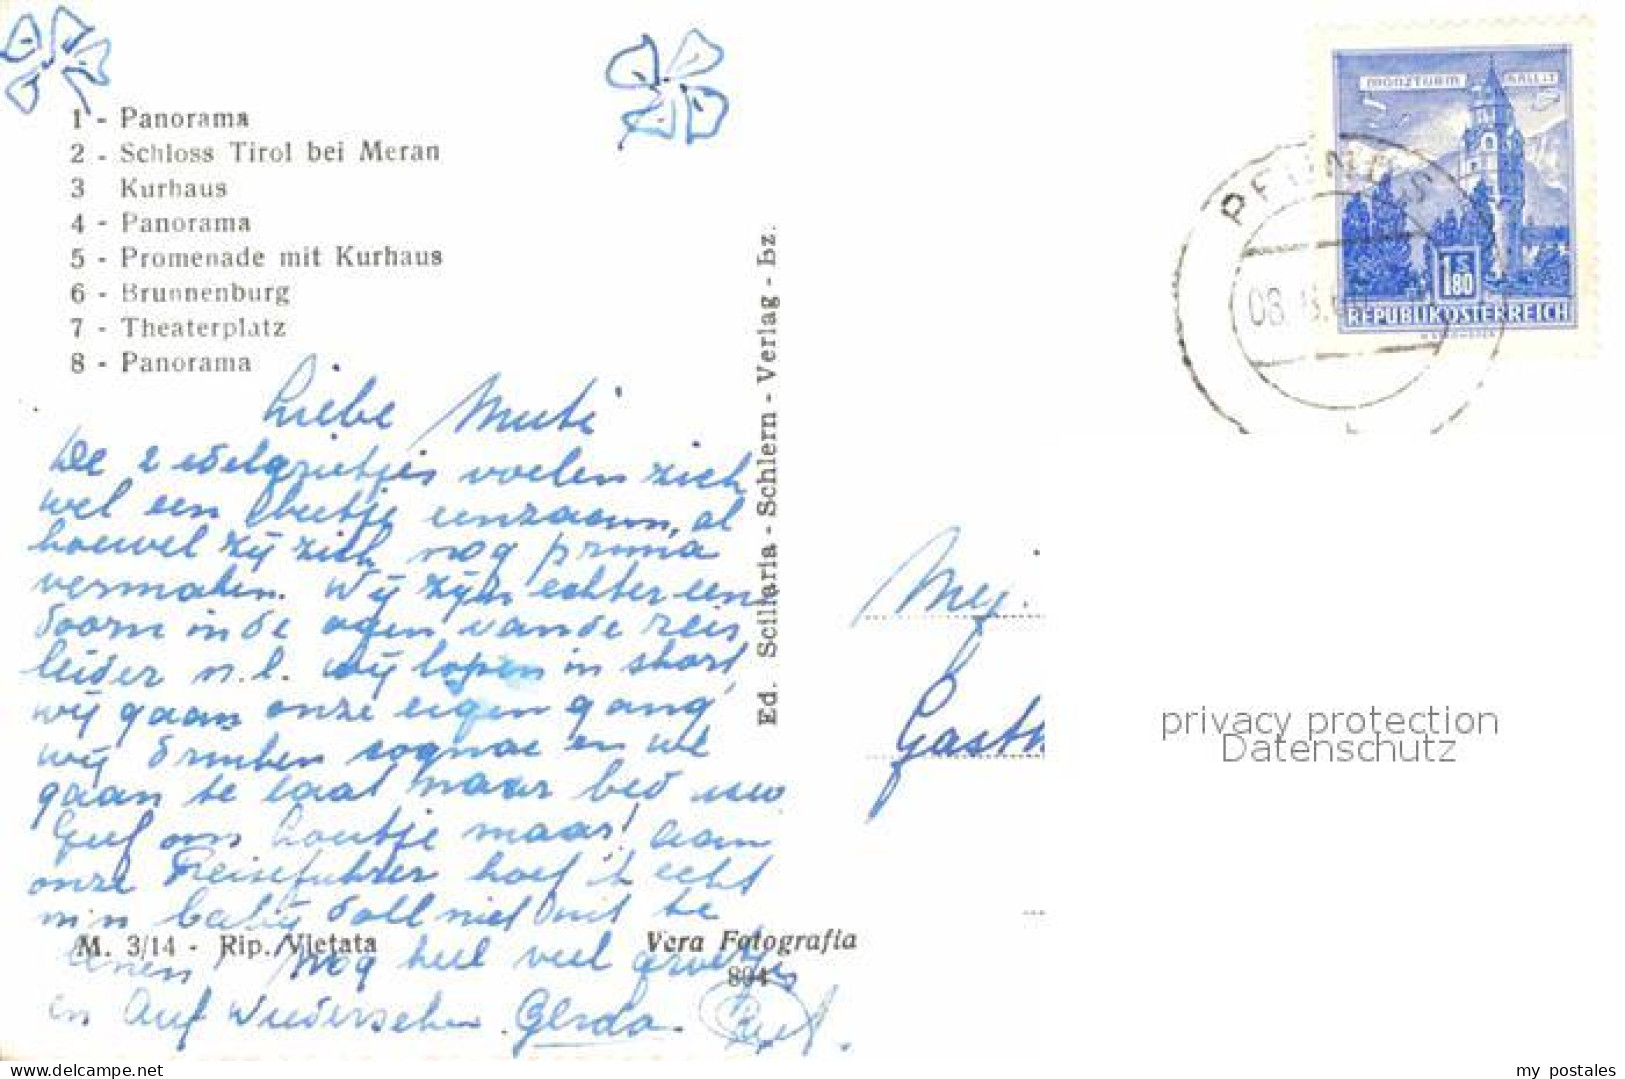 1 - Panorama
2 - Schloss Tirol bei Meran
3 Kurhaus
4 - Panorama
5 - Promenade mit Kurhaus
6 - Brunnenburg
7 - Theaterplatz
8 - Panorama
Liebe Muti
De 2 edelgrietjes voelen zich
wel een beetje eenzaam, al
hoewel zij zich nog prima
vermaken. Wij zijn echter een
doorn in de ogen van de reis
leider n.l. wij lopen in short,
wij gaan onze eigen gang
wij drinken cognac en we
gaan te laat naar bed usw
Geef ons houtje maar! aan
onze Reiseführer hoef ik echt
m'n baby doll niet uit te
lenen! Nog heel veel groetjes
en Auf Wiedersehen. Gerda.
M. 3/14 - Rip. Vietata
Vera Fotografia
804
Ed. Sciliaria - Schlern - Verlag - Bz.
MÜNZTURM HALL i. T
1 S 80
REPUBLIK ÖSTERREICH
PFUNDS
08.
Mej.
Gasth
privacy protection
Datenschutz
www.ansichtskarten-center.de
my_postales